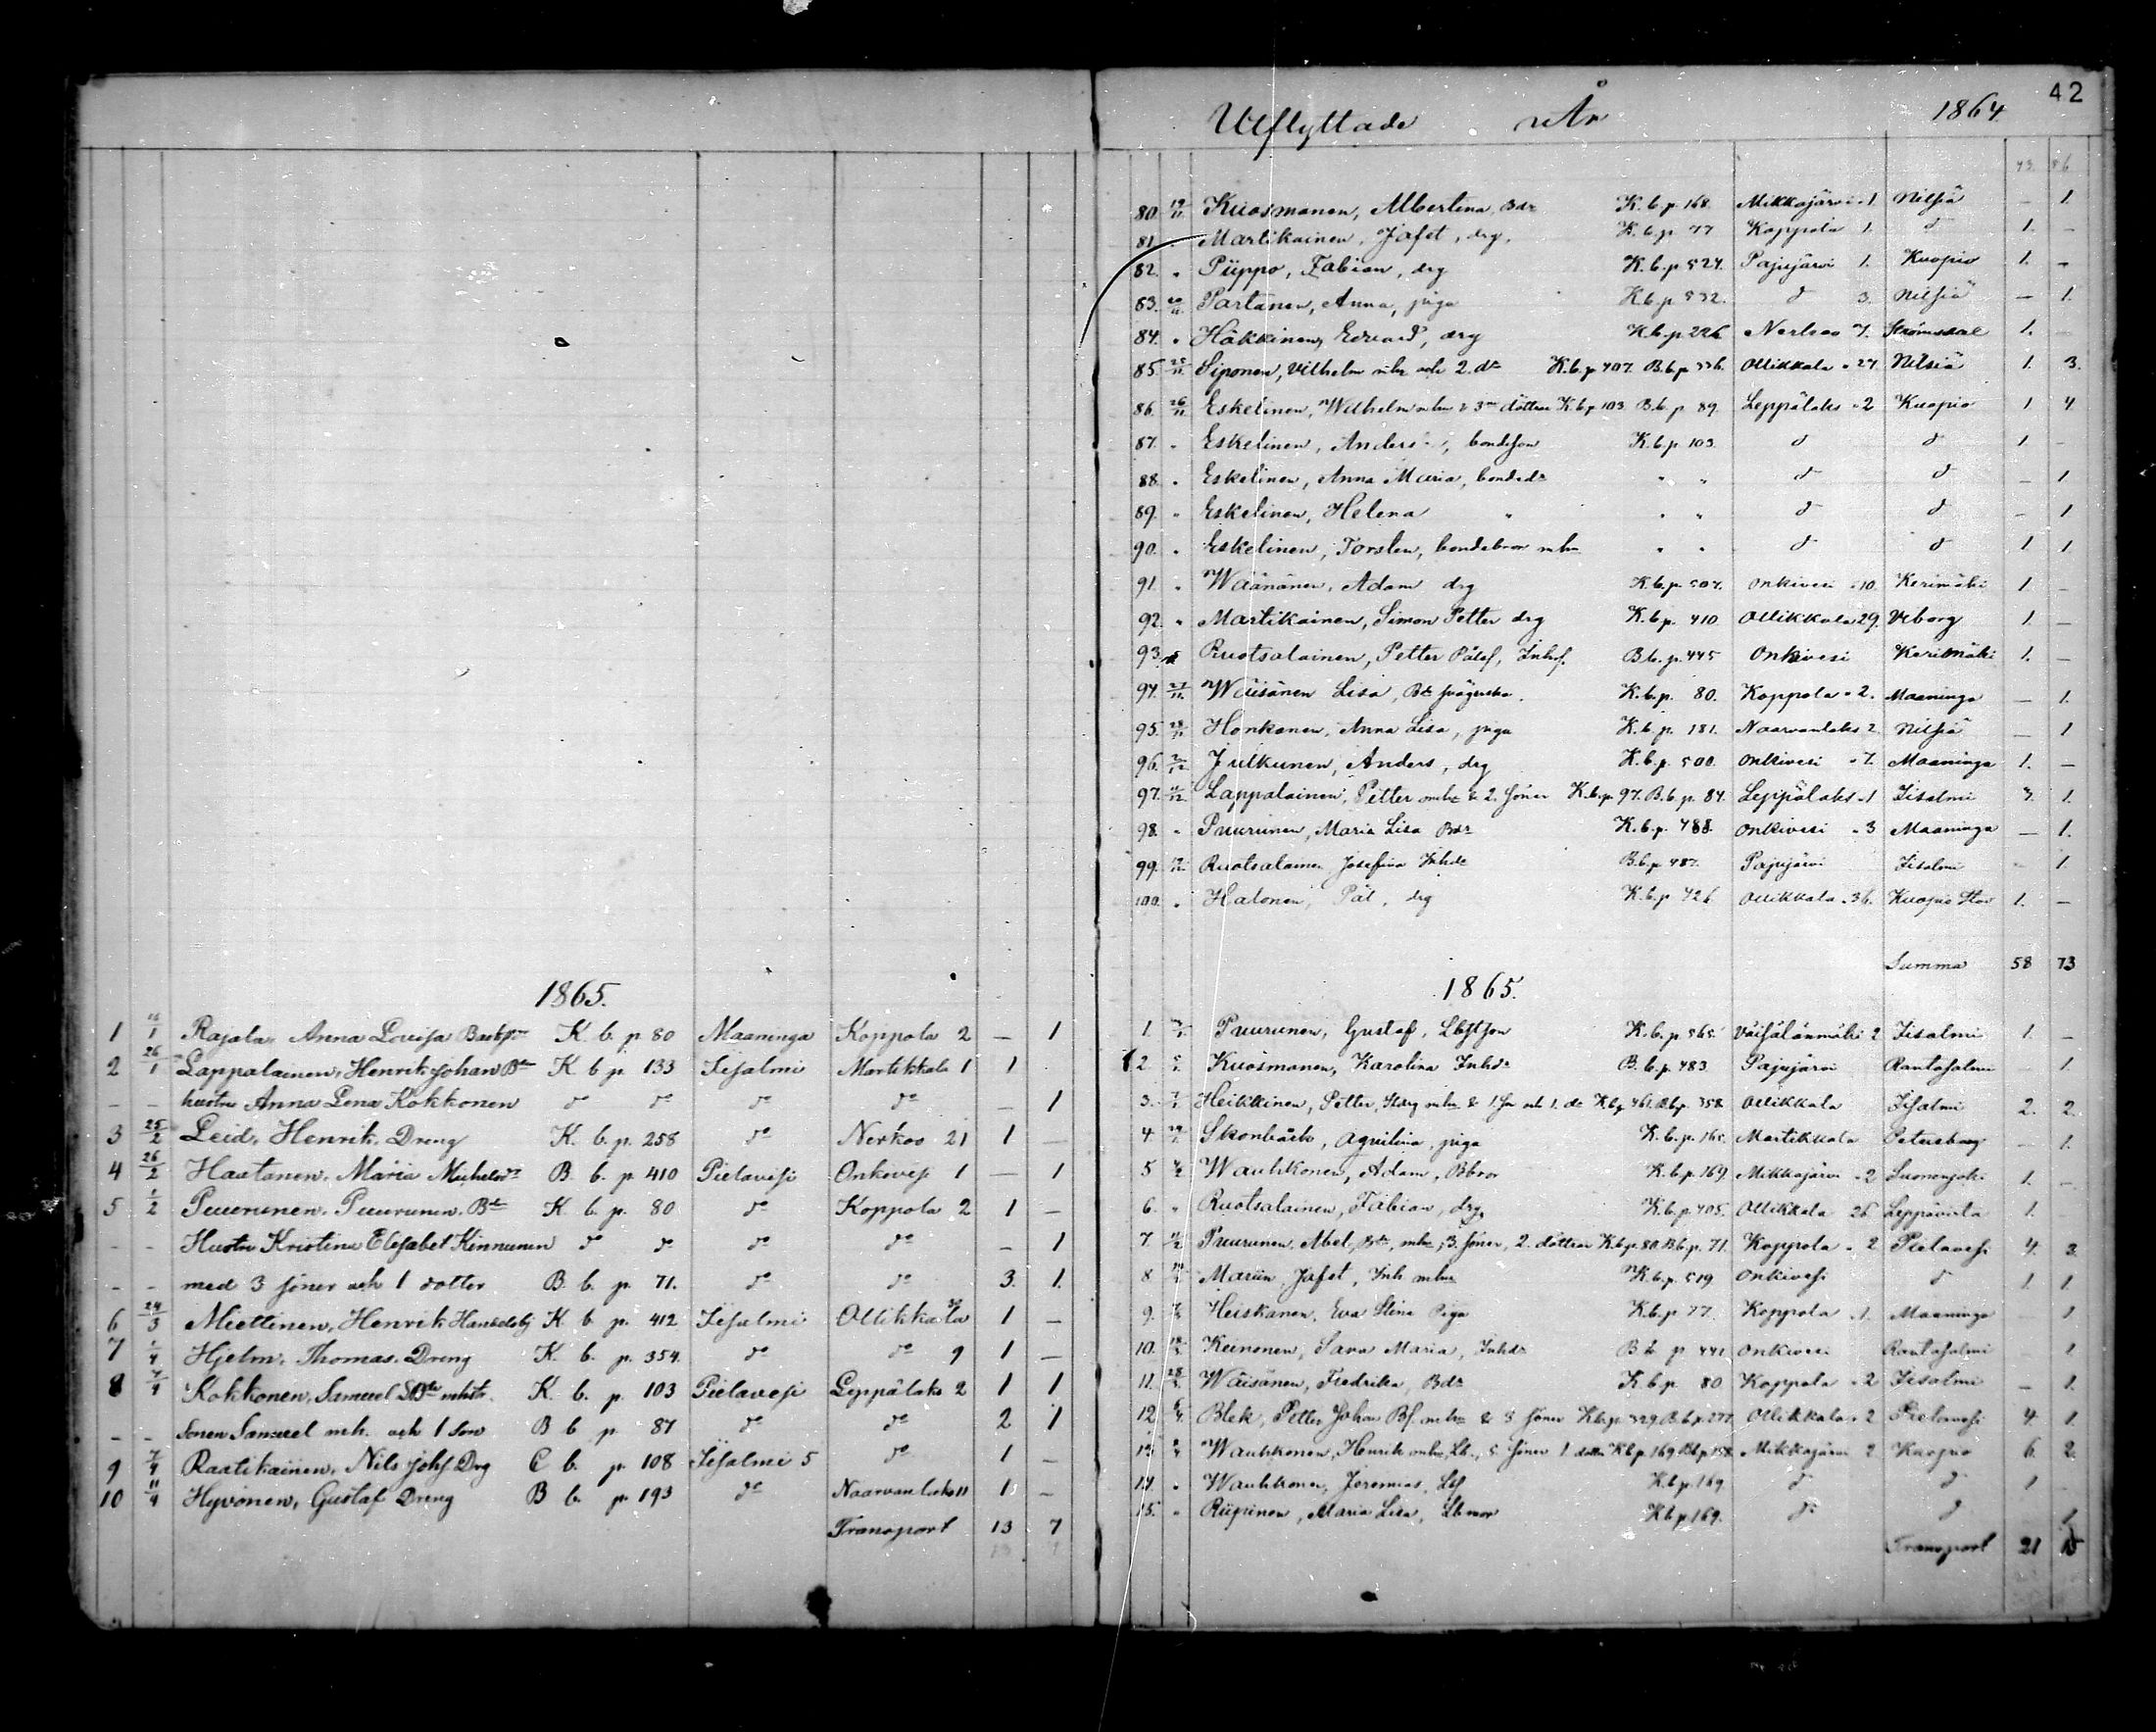 1865.
1 16/1 Rajala, Anna Lovisa K. b. p 80 Maaninga Koppola 2 — 1
2 26/1 Lappalainen, Henrik Johan Bde K b p. 133 Iisalmi Martikkala 1 1
— — hustru Anna Lena Kokkonen do do do do — 1
3 25/2 Leid, Henrik, Dreng K. b. p. 258 do Nerkoo 21 1 —
4 26/2 Hautanen, Maria Michelsdr B. b. p. 410 Pielavesi Onkivesi 1 — 1
5 1/2 Puurunen, Puurunen, Bde K. b. p. 80 do Koppola 2 1 —
— — Hustru Kristina Elisabet Kinnunen do do do do — 1
— — med 3 söner och 1 dotter B. b. p. 71. do do 3. 1.
6 24/3 Miettinen, Henrik K b p. 412 Iisalmi Ollikkala 1 —
7 1/4 Hjelm, Thomas, Dreng K. b. p. 354. do do 9 1 —
8 4/4 Kokkonen, Samuel K. b. p. 103 Pielavesi Leppälaks 2 1 1
— — Sonen Samuel mh. och 1 son B b p 87 do do 2 1
9 7/4 Raatikainen, Nils Johs. Drg C b. p. 108 Iisalmi 5 do 1 —
10 11/4 Hyvönen, Gustaf Dreng B b. p. 193 do Naarvanlaks 11 1 —
Transport 13 7
42
Utflyttade År 1864
43. 86
80. 19/11 Kuosmanen, Albertina, Bdr K. b. p. 168. Mikkajärvi 1. Nilsiä — 1.
81. " Martikainen, Jafet, drg. K. b. p. 77 Koppola 1. d 1. —
82. " Piippo, Fabian, drg K. b. p 524. Pajujärvi 1. Kuopio 1. —
83. 20/11 Partanen, Anna, piga K. b. p. 532. d 3. Nilsiä — 1.
84. " Häkkinen, Edvard, drg K. b. p. 226 Nerkoo 7. Strömsdal 1. —
85. 25/11 Siponen, Vilhelm mhu och 2. dr K. b. p 407. B. b. p 336. Ollikkala " 27. Nilsiä 1. 3.
86. 26/11 Eskelinen, Wilhelm mhu & 3ne döttrar K. b. p 103. B. b. p 89. Leppälaks " 2 Kuopio 1. 4.
87. " Eskelinen, Anders, bondeson K. b. p 103. d d 1. —
88. " Eskelinen, Anna Maria, bondedr " " d d — 1
89. " Eskelinen, Helena " " " d d — 1
90. " Eskelinen, Torsten, bondebror mhu " " d d 1 1
91. " Wäänänen, Adam drg K. b. p. 507. Onkivesi " 10. Kerimäki 1. —
92. " Martikainen, Simon Petter drg K. b. p. 410. Ollikkala 29. Viborg 1. —
93. " Ruotsalainen, Petter Pålsf, Inhs. B. b. p. 445 Onkivesi Kerimäki 1. —
94. 27/11 Wäisänen Lisa, K. b. p. 80. Koppola " 2. Maaninga — 1.
95. 28/11 Honkanen, Anna Lisa, piga K. b. p. 181. Naarvanlaks 2. Nilsiä — 1
96. 2/12 Julkunen, Anders, drg K. b. p. 500. Onkivesi " 7. Maaninga 1. —
97. 11/12 Lappalainen, Petter mhu & 2. söner K. b. p. 97. B. b. p. 84. Leppälaks " 1 Iisalmi 3. 1.
98. " Puurunen, Maria Lisa Bdr K. b. p. 488. Onkivesi " 3 Maaninga — 1.
99. Ruotsalainen Josefina Inhdr B. b. p 487. Pajujärvi Iisalmi — 1.
100. " Halonen, Pål, drg K. b. p 426 Ollikkala " 36. Kuopio Stad 1. —
Summa 58 73
1865.
1. Puurunen, Gustaf, K. b. p. 565. Väisälänmäki 2 Iisalmi 1. —
2. Kuosmanen, Karolina Inhdr B. b. p. 483. Pajujärvi Rantasalmi 1
3. Heikkinen, Petter, mhu & 1. son och 1. dr K. b. p 461. B. b. p. 358 Ollikkala Iisalmi 2. 2.
4. Skonbäck, Aquilina, piga K. b. p. 165. Martikkala Petersburg — 1.
5 Wauhkonen, Adam, Bbror K. b. p. 169. Mikkajärvi " 2 Suonenjoki 1. —
6. " Ruotsalainen, Fabian, drg. K. b. p 405. Ollikkala 26 Leppävirta 1.
7. Puurunen, Abel, Bde, mhu, 3. söner, 2. döttrar K. b. p. 80. B. b. p. 71. Koppola " 2 Pielavesi 4. 3.
8 Jafet, Inh mhu K. b. p. 519 Onkivesi d 1. 1
9. Heiskanen, Eva Stina Piga K. b. p 77. Koppola " 1. Maaninga 1
10. Keinonen, Sara Maria, Inhdr B. b. p 441 Onkivesi Rantasalmi 1
11. Wäisänen, Fredrika, Bdr K. b. p. 80 Koppola " 2 Iisalmi — 1.
12 Blek, Petter Johan Bf. mhu & 3 söner K. b. p. 329. B. b. p. 277. Ollikkala " 2 Pielavesi 4. 1.
13. Wauhkonen, Henrik mhu, Lb., 5 söner 1 dotter K. b. p. 169. B. b. p 158. Mikkajärvi 2 Kuopio 6. 2.
14. " Wauhkonen, Jeremias, K. b. p. 169. d d 1
15. " Riipinen, Maria Lisa, Lbmor K. b. p 169. do d 1
Transport 21